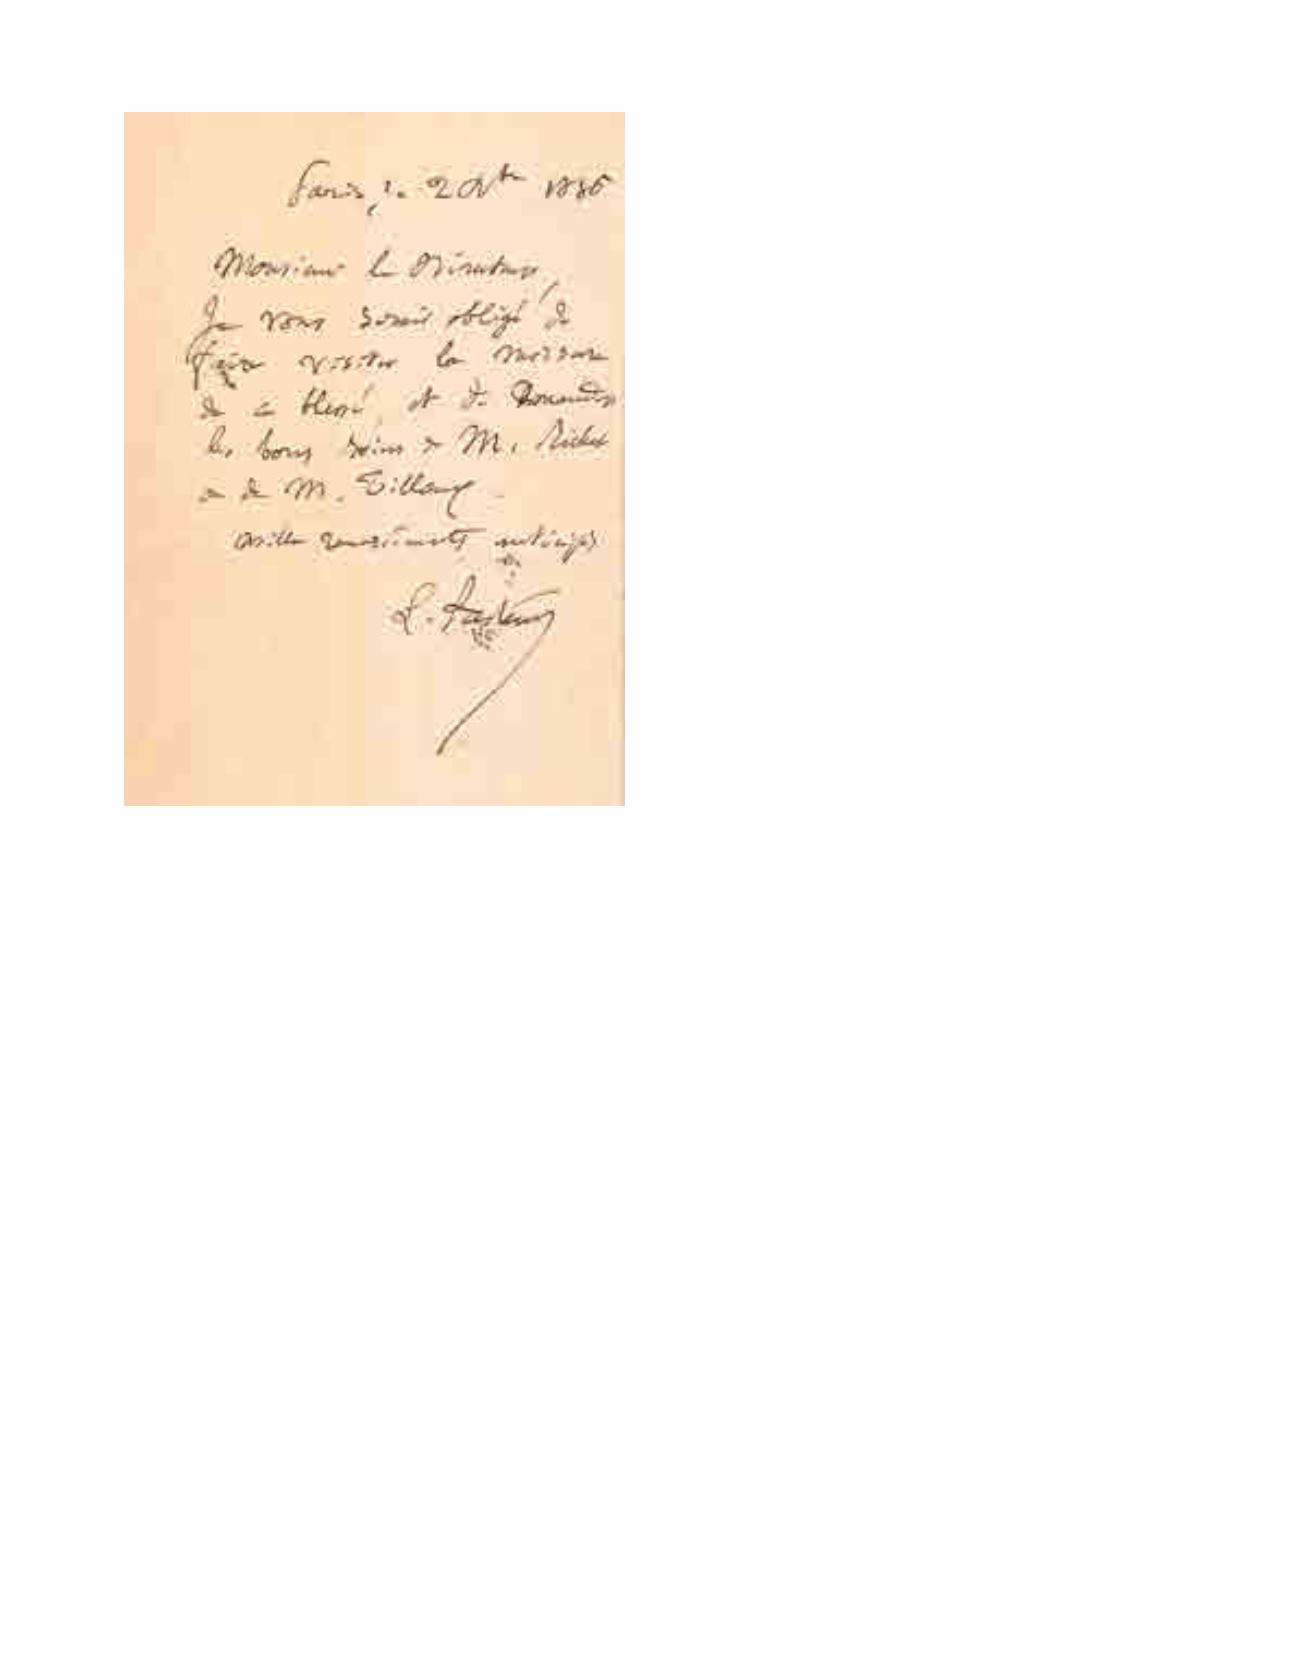 Paris, le 2 Nbre 1886
Monsieur le Directeur,
Je vous serais obligé de
faire visiter la morsure
de ce blessé et de demander
les bons soins de M. Richet
ou de M. Tillaux.
Mille remerciements anticipés
L. Pasteur